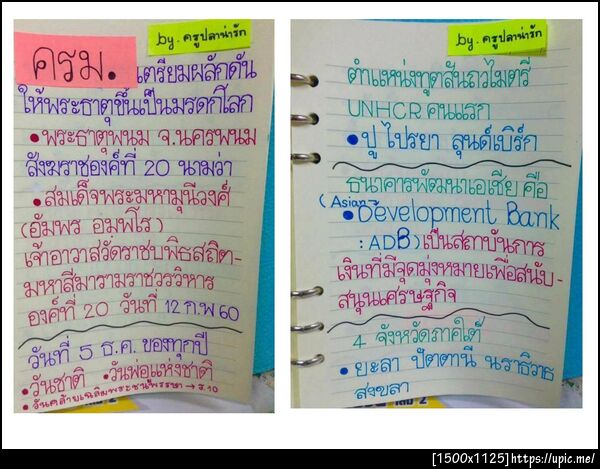 by. ครูปลาน่ารัก
ครม. เตรียมผลักดัน
ให้พระธาตุขึ้นเป็นมรดกโลก
• พระธาตุพนม จ.นครพนม
สังฆราชองค์ที่ 20 นามว่า
• สมเด็จพระมหามุนีวงศ์
(อัมพร อมฺพโร)
เจ้าอาวาสวัดราชบพิธสถิต-
มหาสีมารามราชวรวิหาร
องค์ที่ 20 วันที่ 12 ก.พ 60
วันที่ 5 ธ.ค. ของทุกปี
• วันชาติ • วันพ่อแห่งชาติ
• วันคล้ายเฉลิมพระชนมพรรษา → ร.10
by. ครูปลาน่ารัก
ตำแหน่งทูตสันถวไมตรี
UNHCR คนแรก
• ปู ไปรยา ลุนด์เบิร์ก
ธนาคารพัฒนาเอเชีย คือ
(Asian
• Development Bank
: ADB) เป็นสถาบันการ
เงินที่มีจุดมุ่งหมายเพื่อสนับ-
สนุนเศรษฐกิจ
4 จังหวัดภาคใต้
• ยะลา ปัตตานี นราธิวาส
สงขลา
[1500x1125]https://upic.me/